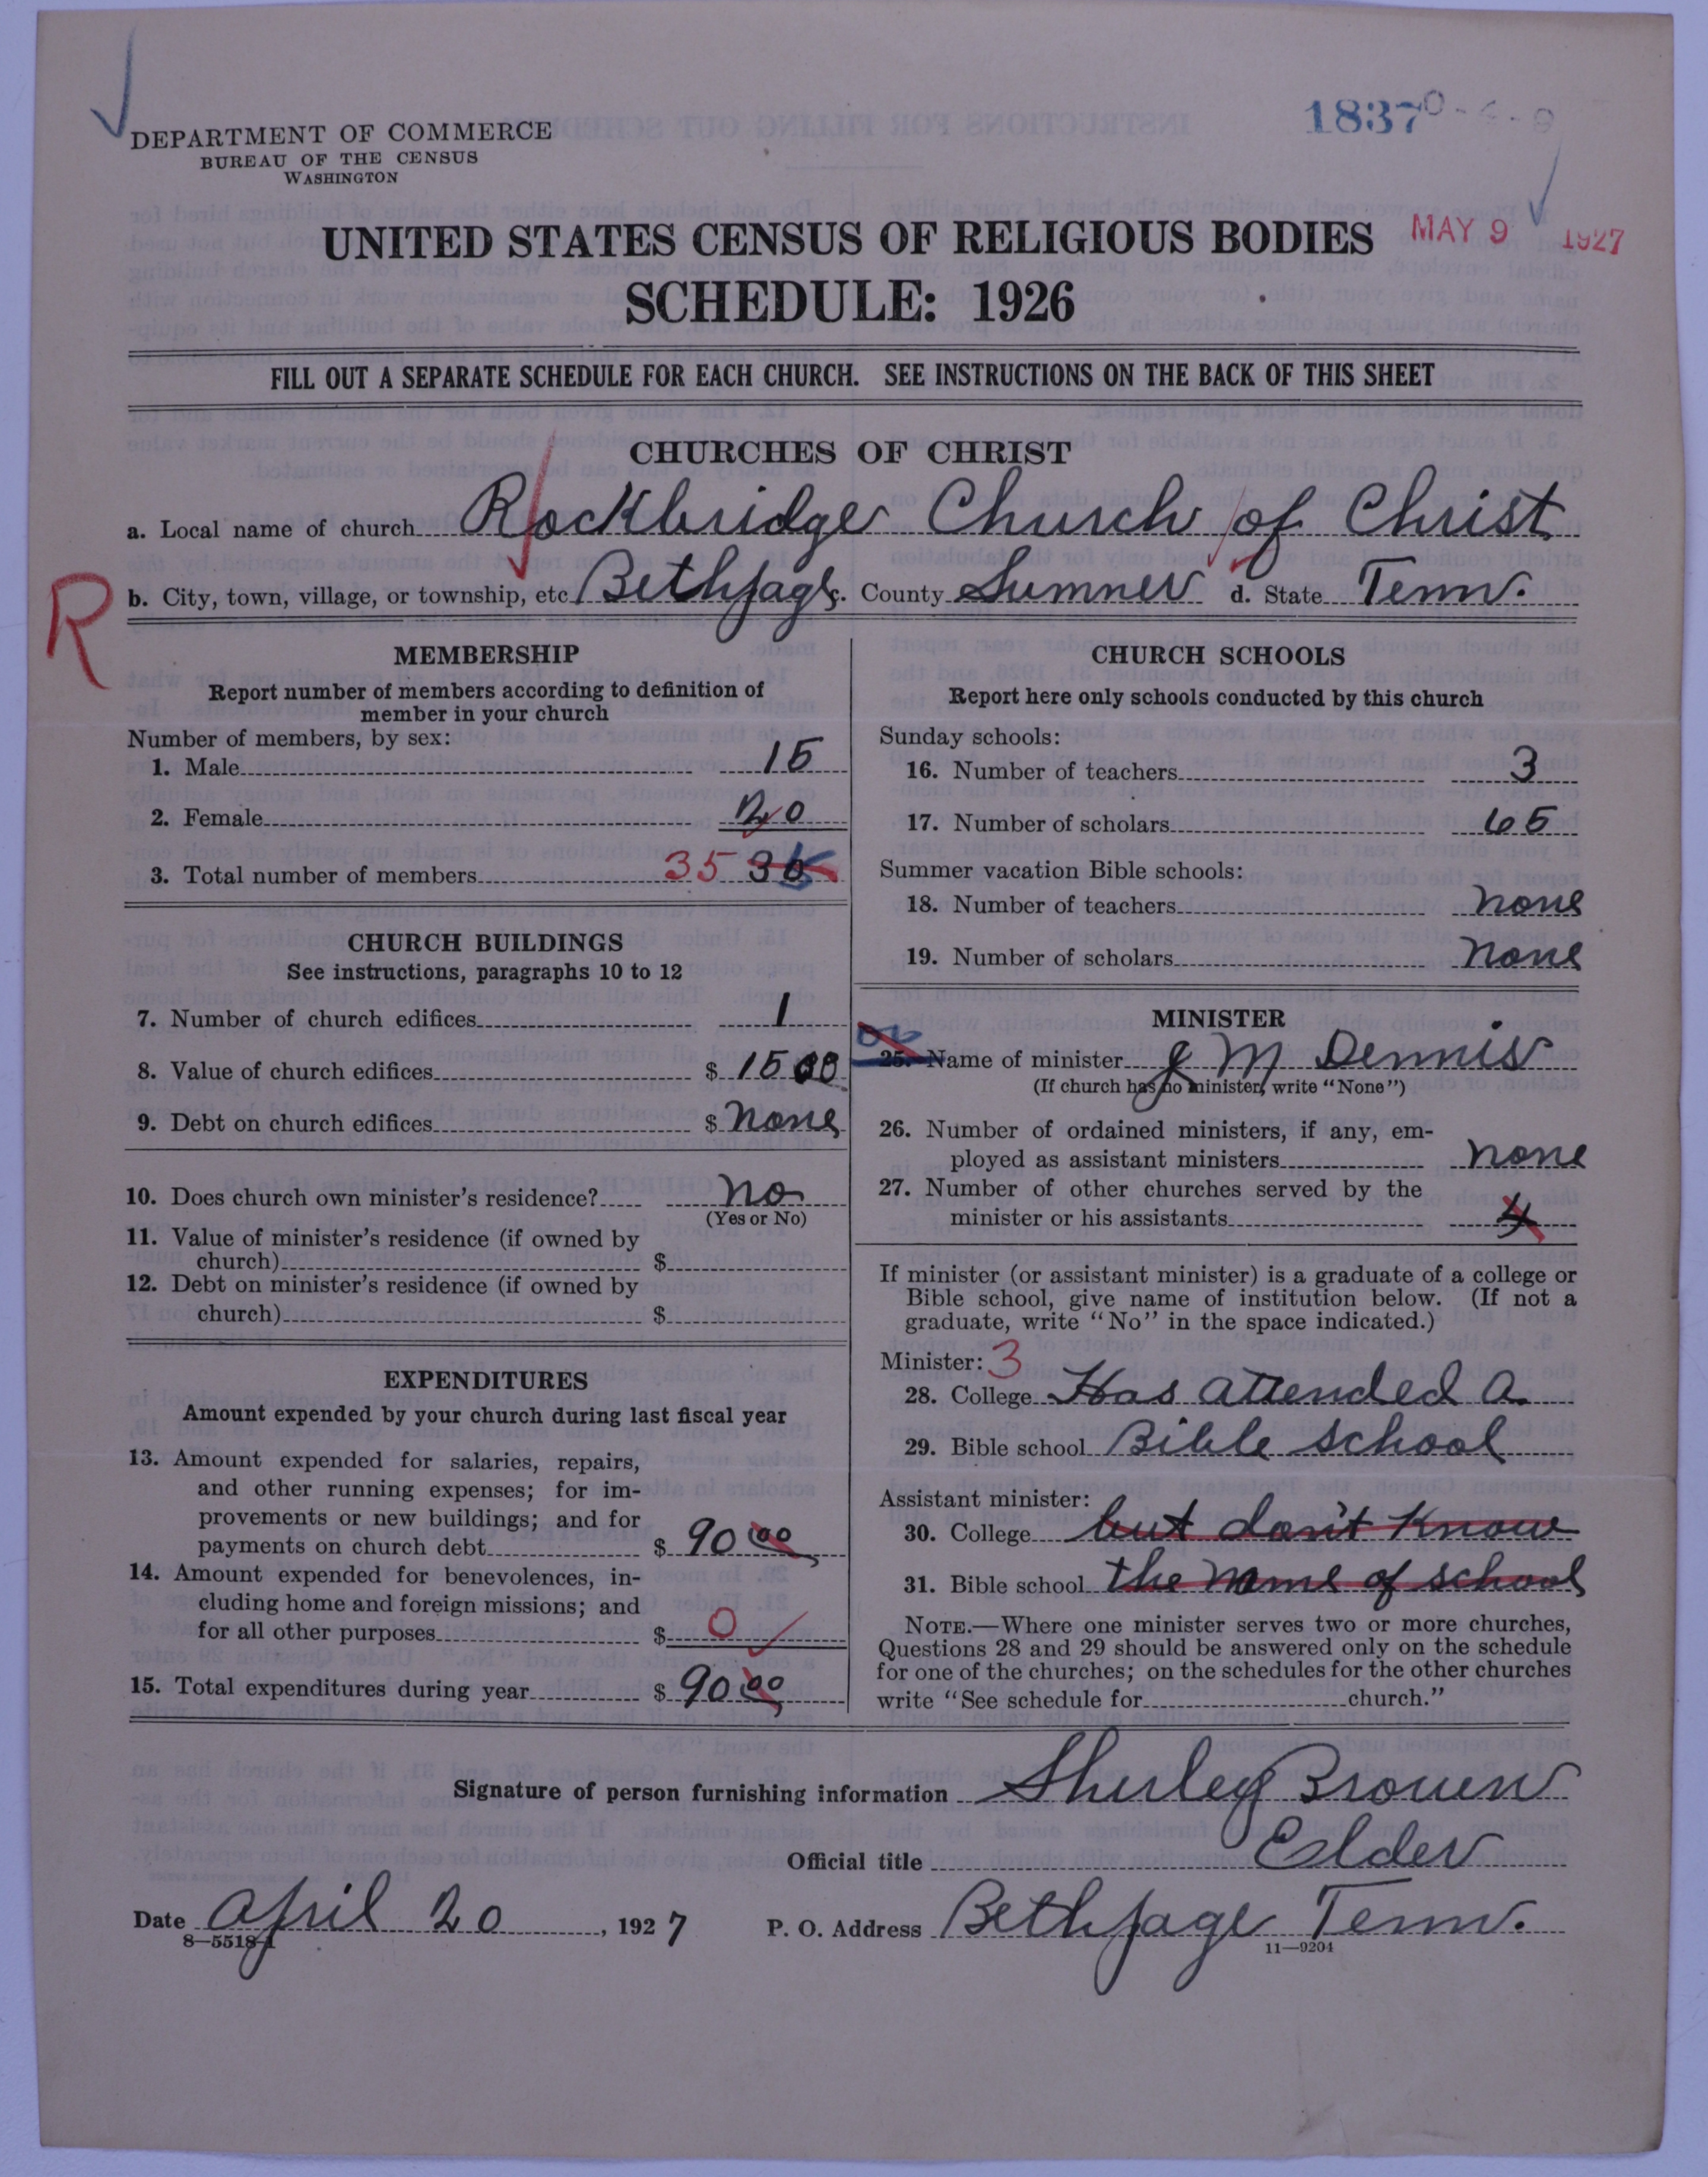 1837 0-4-9
DEPARTMENT OF COMMERCE
BUREAU OF THE CENSUS
WASHINGTON
UNITED STATES CENSUS OF RELIGIOUS BODIES MAY 9 1927
SCHEDULE: 1926
FILL OUT A SEPARATE SCHEDULE FOR EACH CHURCH. SEE INSTRUCTIONS ON THE BACK OF THIS SHEET
CHURCHES OF CHRIST
a. Local name of church Rockbridge Church of Christ
R
b. City, town, village, or township, etc. Bethpage c. County Sumner d. State Tenn.
MEMBERSHIP
Report number of members according to definition of
member in your church
Number of members, by sex:
1. Male 15
2. Female 20
3. Total number of members 35
CHURCH BUILDINGS
See instructions, paragraphs 10 to 12
7. Number of church edifices 1
8. Value of church edifices $ 1500
9. Debt on church edifices $ none
10. Does church own minister's residence? no
(Yes or No)
11. Value of minister's residence (if owned by
church) $
12. Debt on minister's residence (if owned by
church) $
EXPENDITURES
Amount expended by your church during last fiscal year
13. Amount expended for salaries, repairs,
and other running expenses; for im-
provements or new buildings; and for
payments on church debt $ 90 00
14. Amount expended for benevolences, in-
cluding home and foreign missions; and
for all other purposes $ 0
15. Total expenditures during year $ 90 00
CHURCH SCHOOLS
Report here only schools conducted by this church
Sunday schools:
16. Number of teachers 3
17. Number of scholars 65
Summer vacation Bible schools:
18. Number of teachers none
19. Number of scholars none
MINISTER
25. Name of minister J M Dennis
(If church has no minister, write "None")
26. Number of ordained ministers, if any, em-
ployed as assistant ministers none
27. Number of other churches served by the
minister or his assistants 4
If minister (or assistant minister) is a graduate of a college or
Bible school, give name of institution below. (If not a
graduate, write "No" in the space indicated.)
Minister: 3
28. College Has attended a
29. Bible school Bible school
Assistant minister:
30. College but don't know
31. Bible school the name of school
NOTE.—Where one minister serves two or more churches,
Questions 28 and 29 should be answered only on the schedule
for one of the churches; on the schedules for the other churches
write "See schedule for church."
Signature of person furnishing information Shirley Brown
Official title Elder
Date April 20, 1927 P. O. Address Bethpage Tenn.
8—5518-1 11—9204